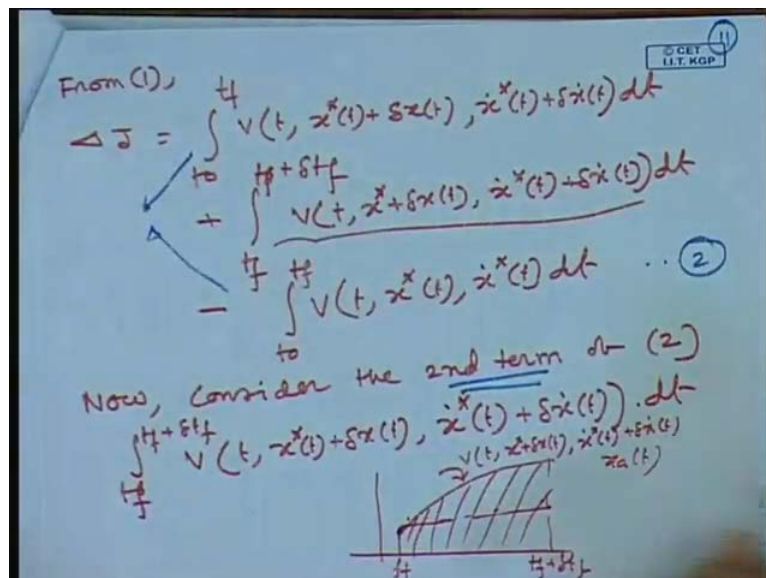 11
© CET
I.I.T. KGP
From (1),
ΔJ = ∫_{t0}^{tf} V(t, x*(t) + δx(t), ẋ*(t) + δẋ(t)) dt
+ ∫_{tf}^{tf + δtf} V(t, x* + δx(t), ẋ*(t) + δẋ(t)) dt
− ∫_{t0}^{tf} V(t, x*(t), ẋ*(t) dt .. 2
Now, consider the 2nd term of (2)
∫_{tf}^{tf + δtf} V(t, x*(t) + δx(t), ẋ*(t) + δẋ(t)) . dt
V(t, x* + δx(t), ẋ*(t) + δẋ(t)
xa(t)
tf + δtf